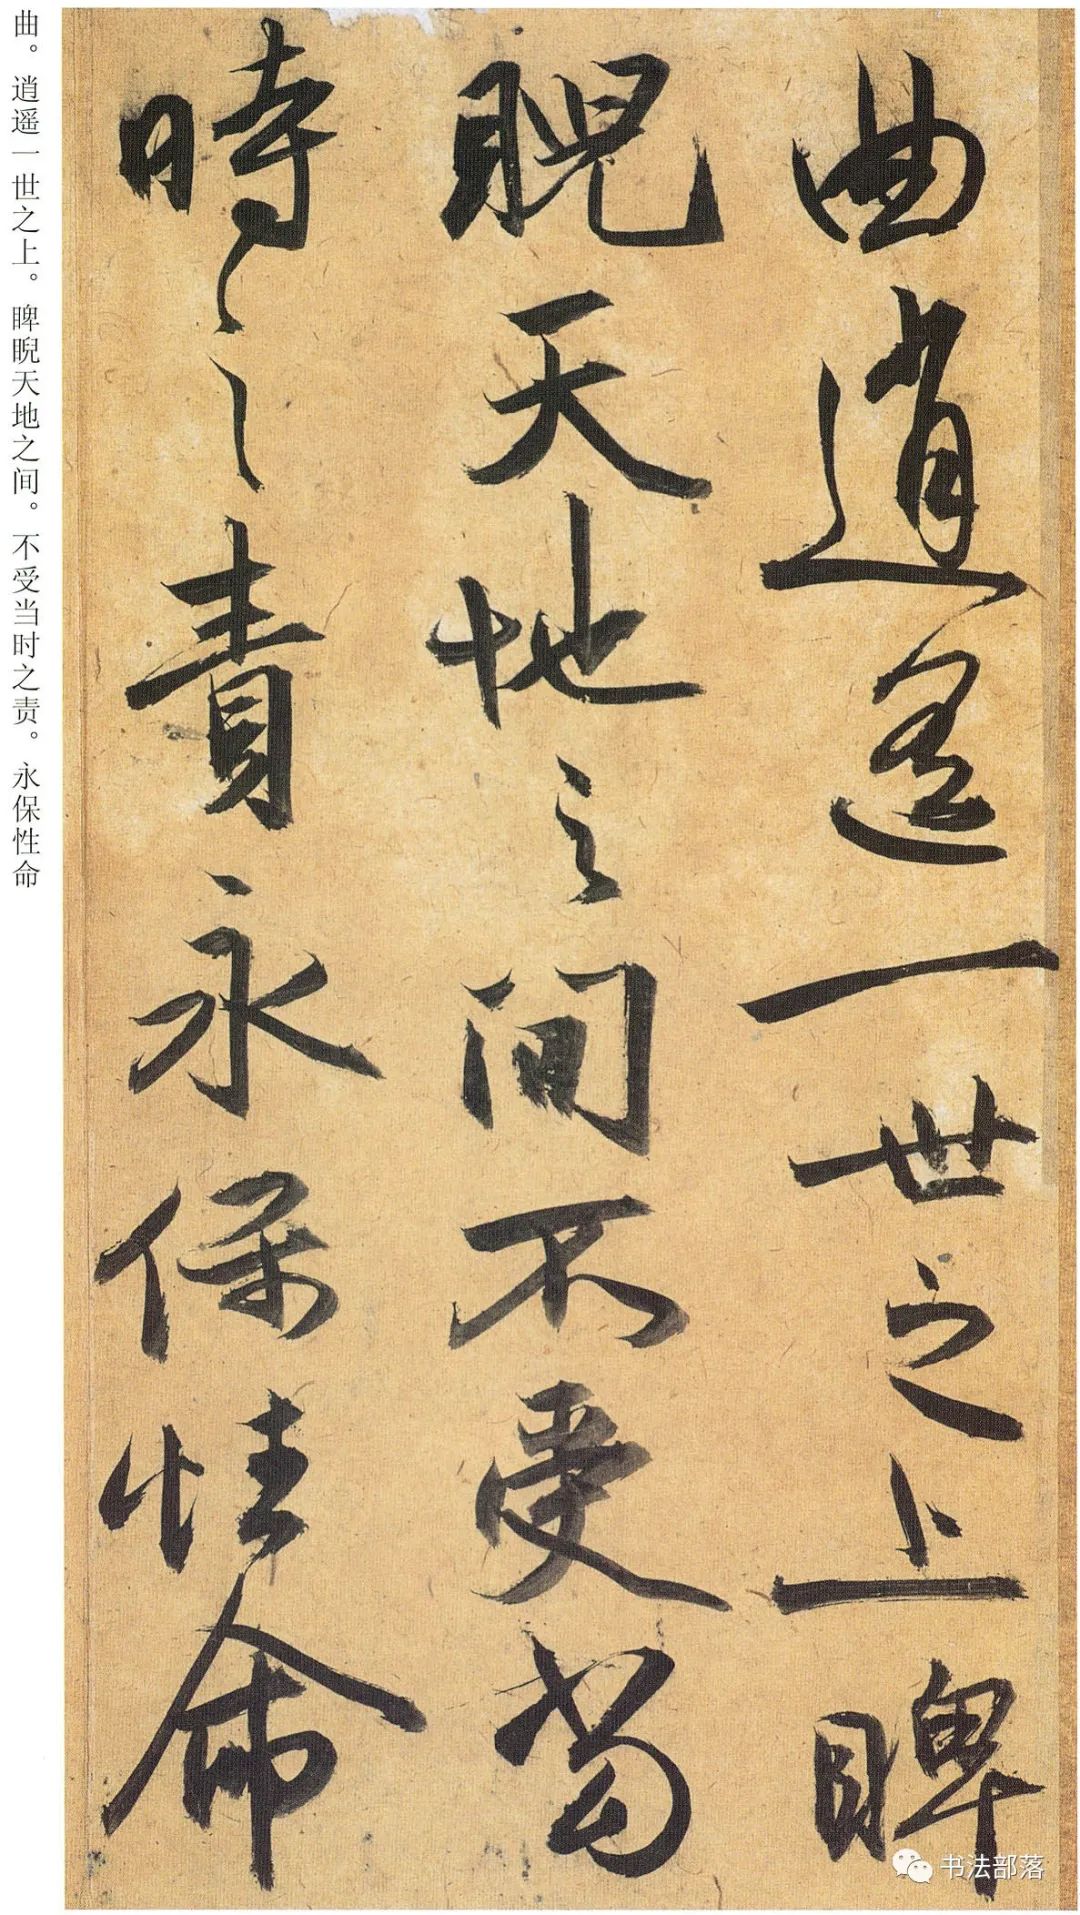 曲逍遥一世之上睥
睨天地之间不受当
時之責永保性命
曲。逍遥一世之上。睥睨天地之间。不受当时之责。永保性命
书法部落